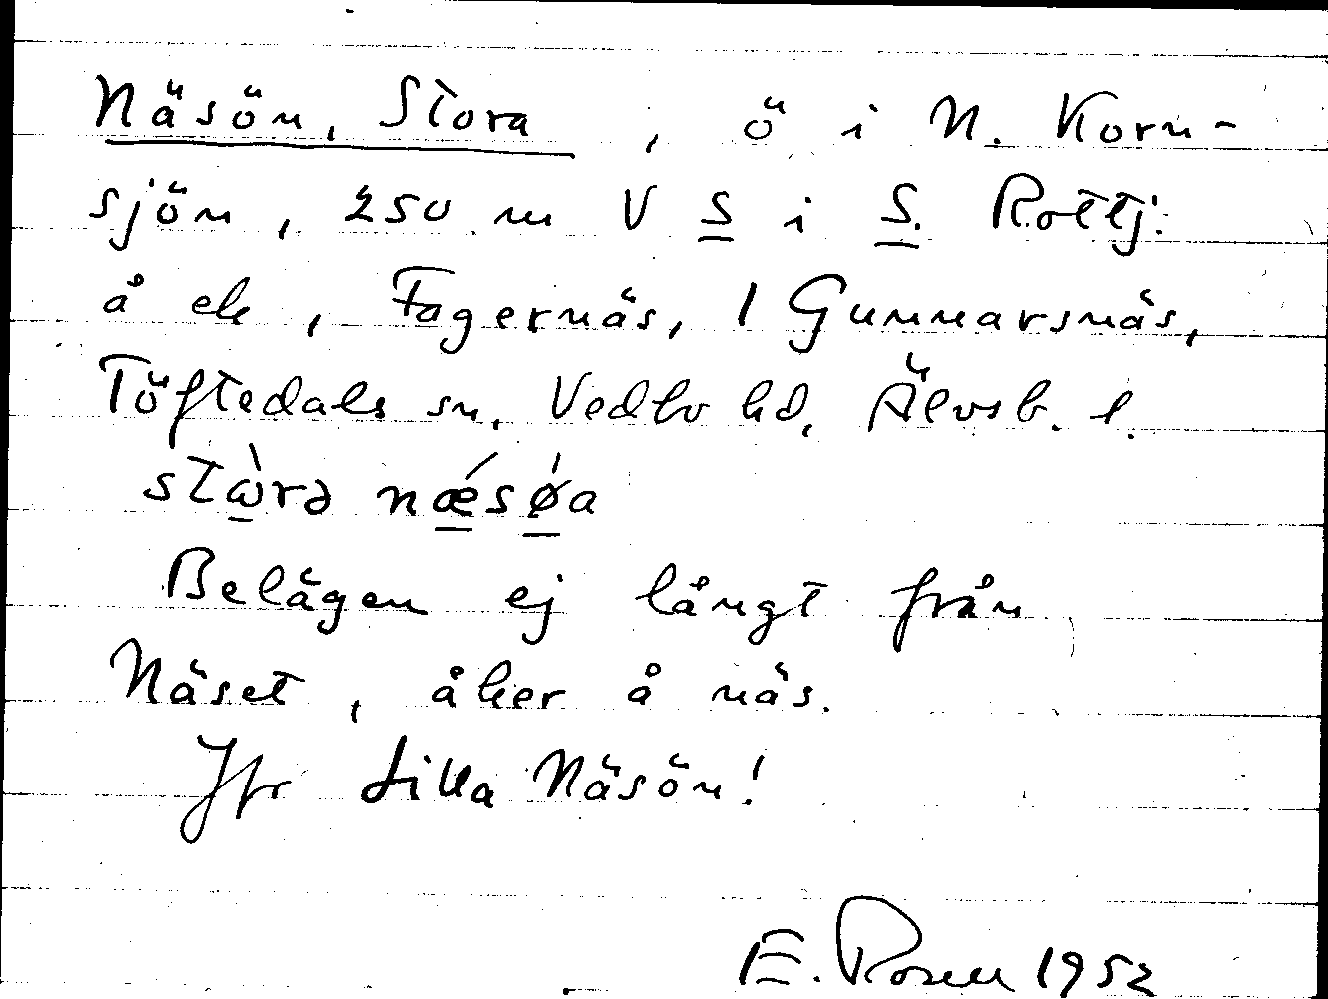 Näsön, Stora, ö i N. Korn-
sjön, 250 m V S i S. Rottj.
å ek, Fagernäs, 1 Gunnarsnäs,
Töftedals sn, Vedbo hd, Älvsb. l.
stὼrə nǽsǿa
Belägen ej långt från
Näset, åker å näs.
Jfr Lilla Näsön!
E. Rosell 1952